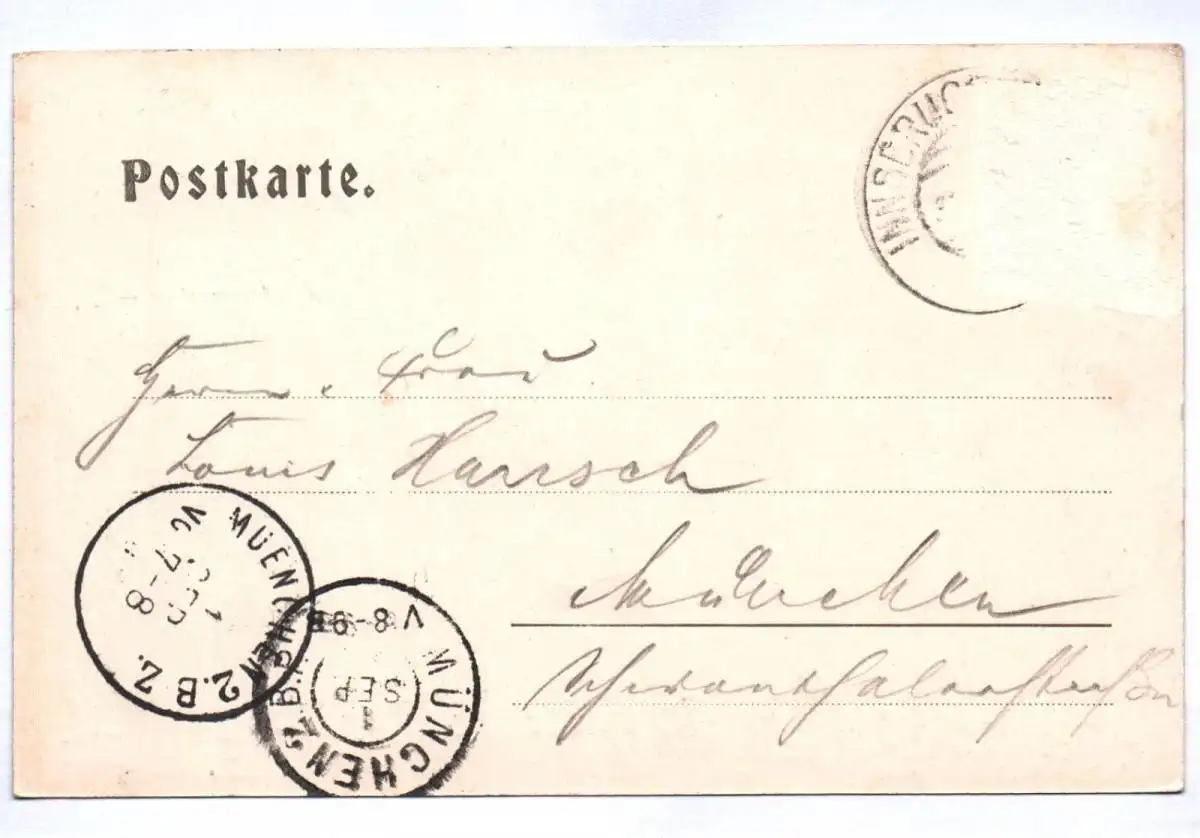 Postkarte.
INNSBRUC
Herrn u. Frau
Louis Harrsch
München
Schwanthalerstraße
MUENCHEN 2.B.Z.
1 SEP
7-8
MÜNCHEN 2
1 SEP
V 8-9